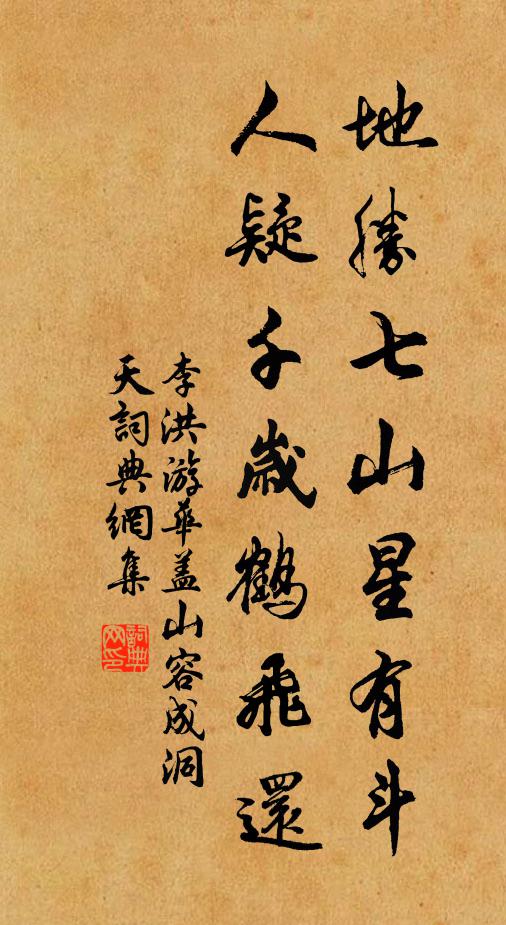 地勝七山星有斗
人疑千歲鶴飛還
李洪游華蓋山容成洞
天詞典網集
詞典
网印